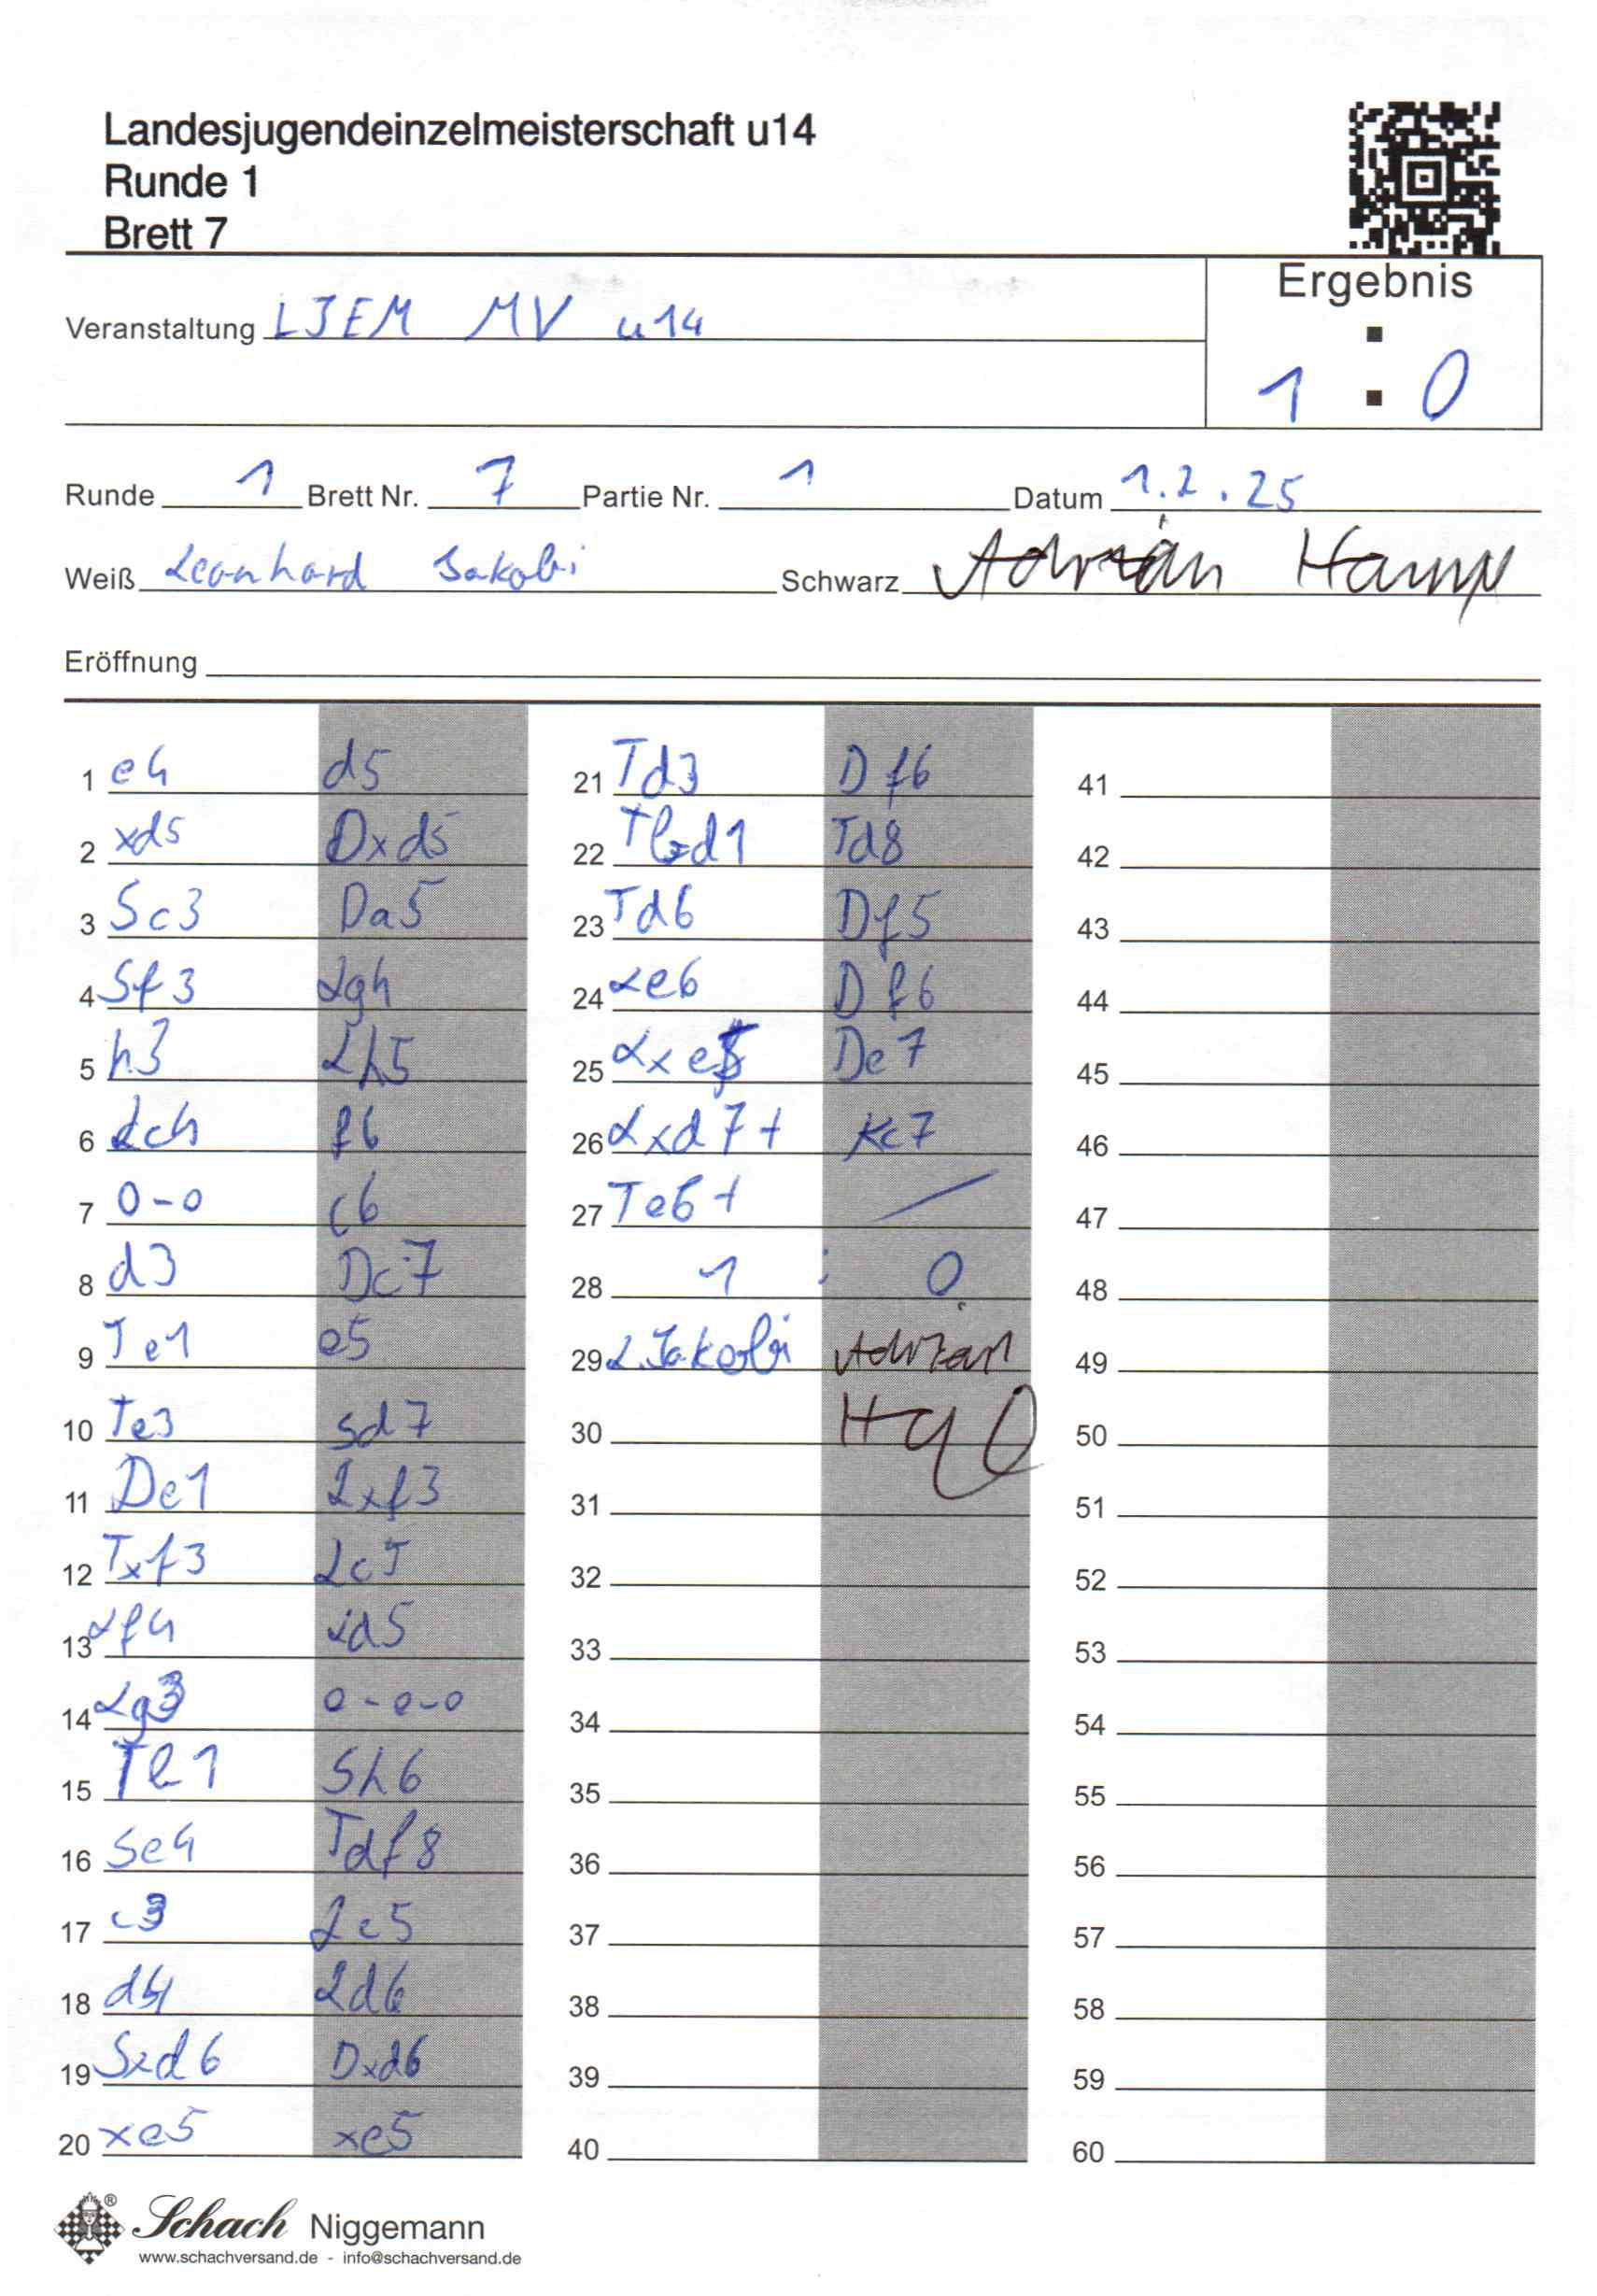 Landesjugendeinzelmeisterschaft u14
Runde 1
Brett 7
Ergebnis
Veranstaltung LJEM MV u14
1 : 0
Runde 1 Brett Nr. 7 Partie Nr. 1 Datum 1.2.25
Weiß Leonhard Jakobi Schwarz Adrian
Eröffnung
1 e4 d5
2 xd5 Dxd5
3 Sc3 Da5
4 Sf3 Lg4
5 h3 Lh5
6 Lc4 f6
7 0-0 c6
8 d3 Dc7
9 Te1 e5
10 Te3 Sd7
11 De1 Lxf3
12 Txf3 Lc5
13 Lf4 Ld5
14 Lg3 0-0-0
15 Te1 Sh6
16 Se4 Tdf8
17 c3 Le5
18 d4 Ld6
19 Sxd6 Dxd6
20 xe5 xe5
21 Td3 Df6
22 Td1 Td8
23 Td6 Df5
24 Le6 Df6
25 Lxe5 De7
26 Lxd7+ Kc7
27 Te6+
28 1 : 0
29 L.Jakobi Adrian
30
31
32
33
34
35
36
37
38
39
40
41
42
43
44
45
46
47
48
49
50
51
52
53
54
55
56
57
58
59
60
Schach Niggemann
www.schachversand.de - info@schachversand.de